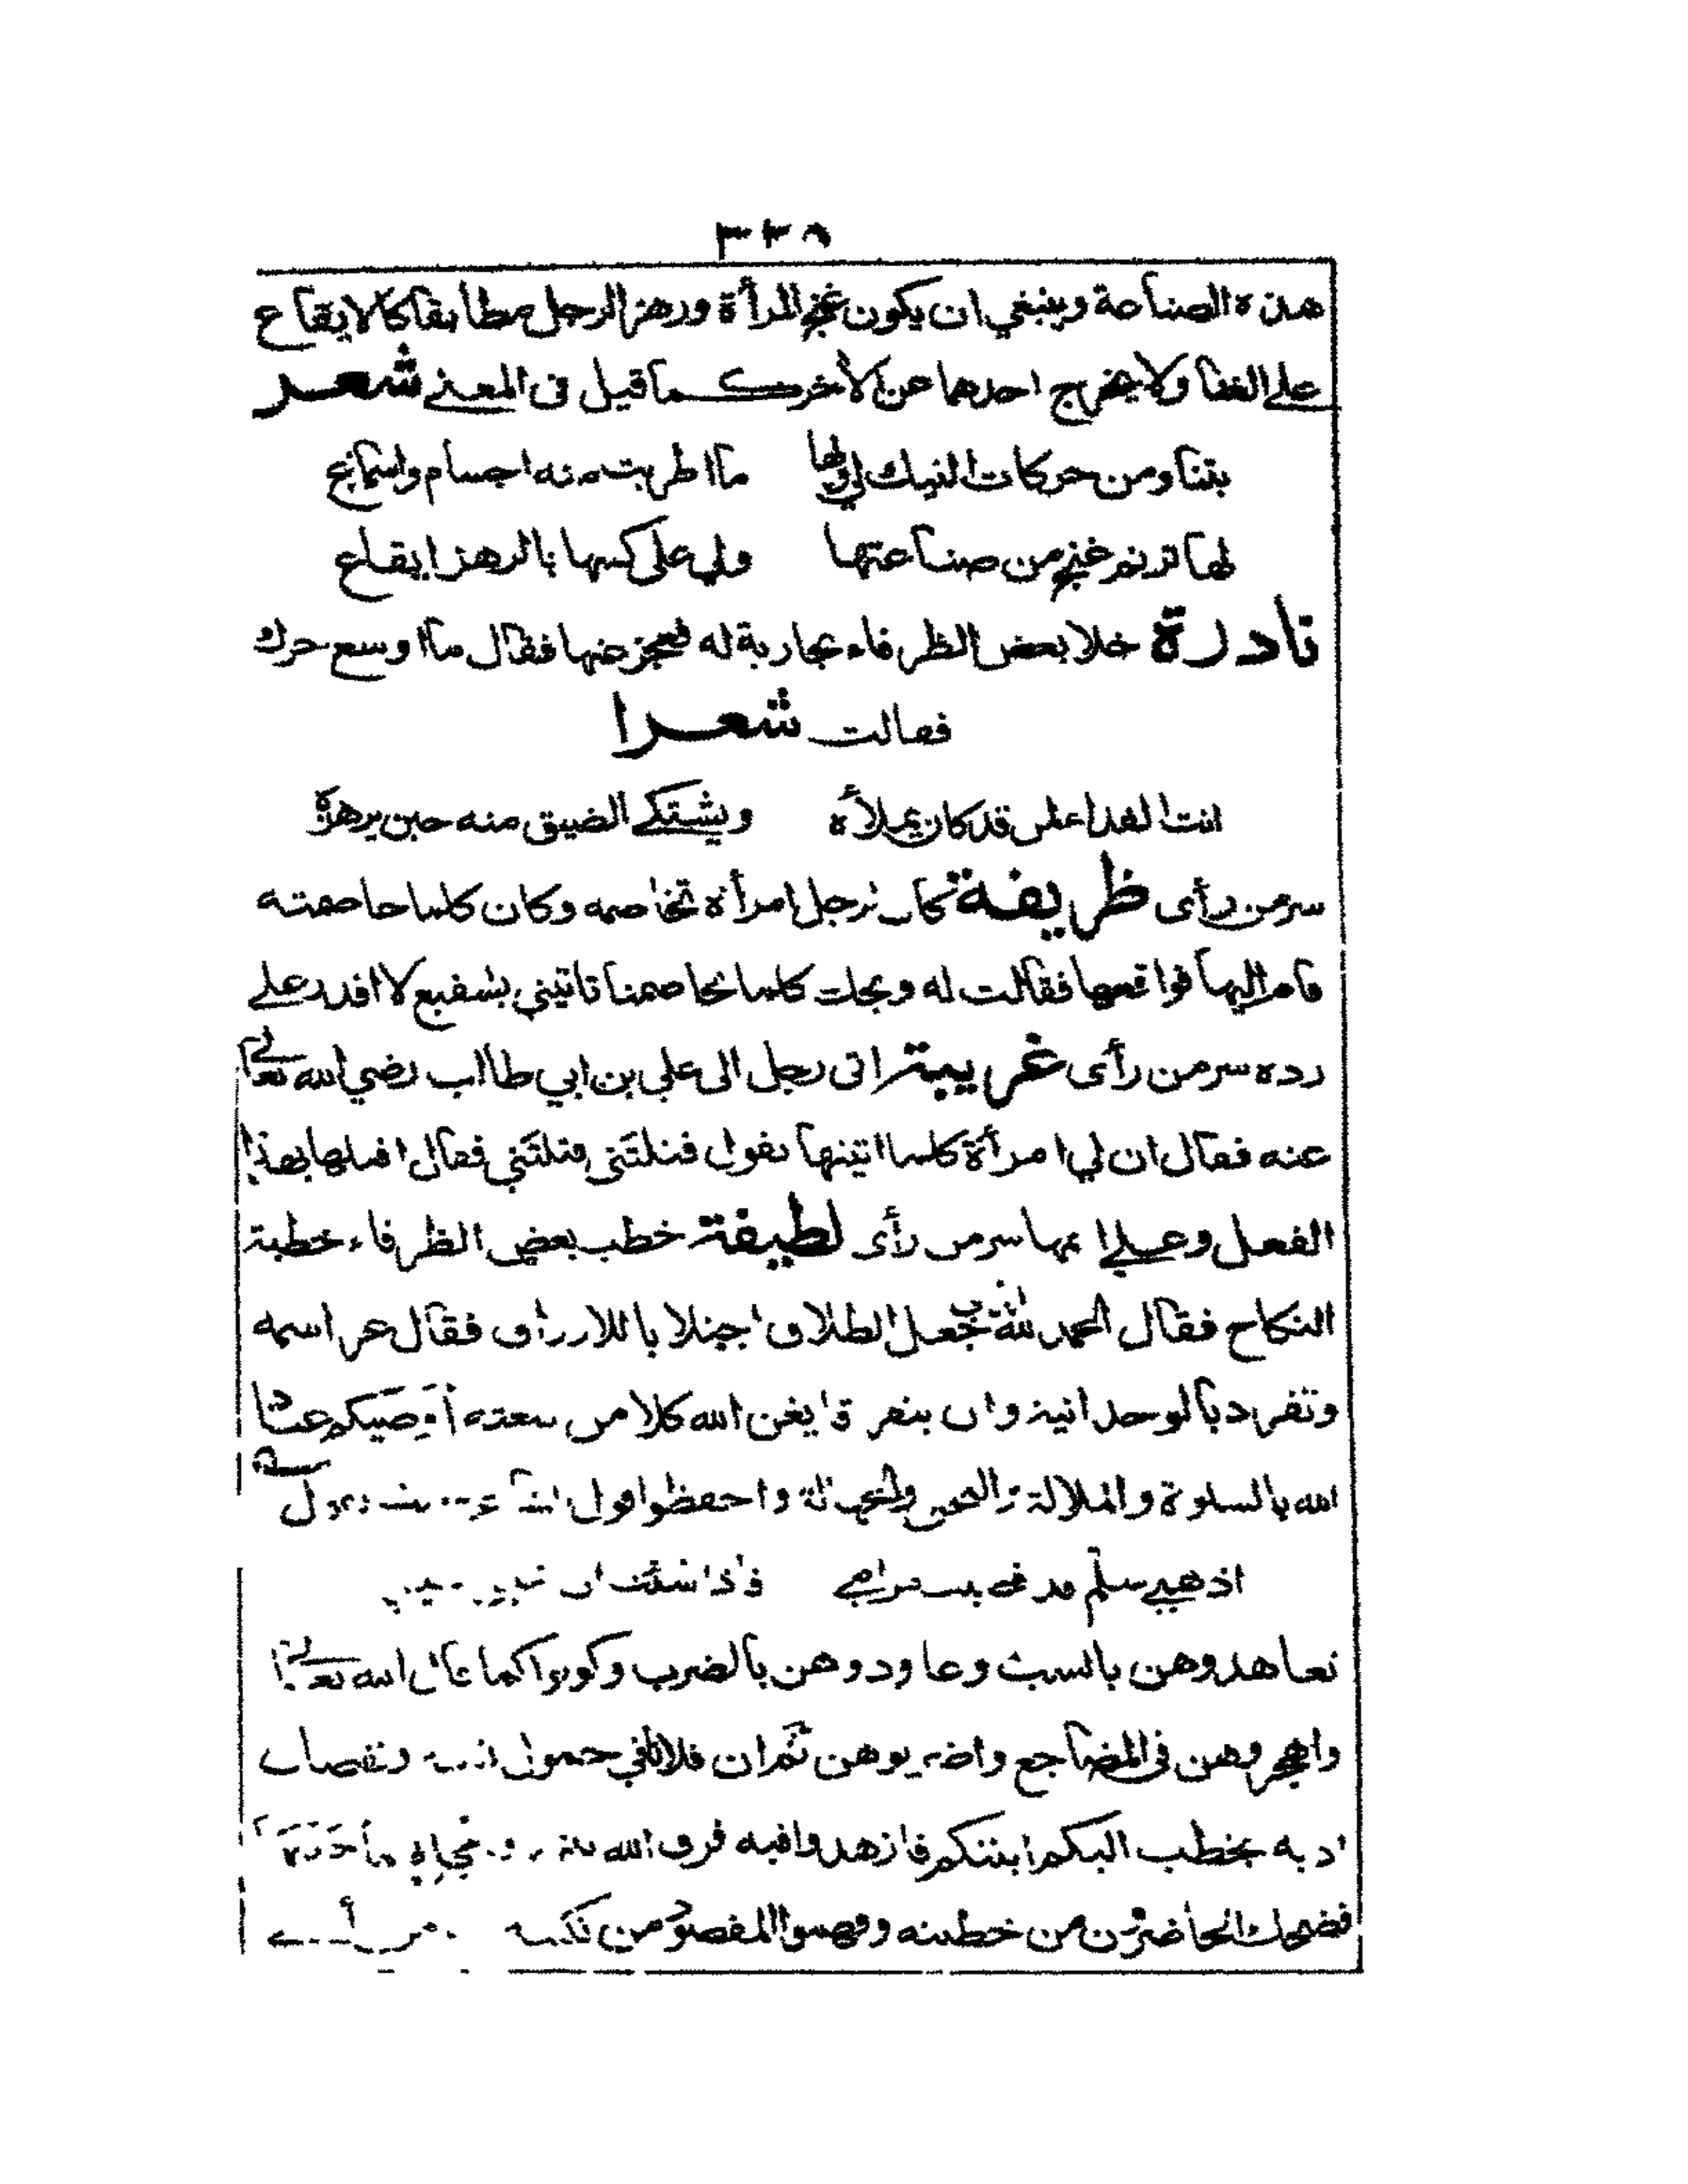 ٣٣٥
هذه الصناعة وينبغي ان يكون غنج المرأة ورهز الرجل مطابقا كالايقاع
على الغنا ولا يخرج احدهما عن الأخر كما قيل فى المعنى شعر
بتنا ومن حركات النيك لي ولها ما اطربت منه اجسام واسماع
لها ترنم غنج من صناعتها ولي على كسها بالرهز ايقاع
نادرة خلا بعض الظرفاء بجارية له فعجز عنها فقال ما اوسع حرك
فقالت شعرا
انت الفدا لمن قد كان يملأه ويشتكى الضيق منه حين يرهزه
سرمن رأى ظريفة كان لرجل امرأة تخاصمه وكان كلما خاصمته
قام اليها فواقعها فقالت له ويحك كلما تخاصمنا تاتيني بشفيع لا اقدر على
رده سرمن رأى غريبة اتى رجل الى علي بن ابي طالب رضي الله تعالى
عنه فقال ان لي امرأة كلما اتيتها تقول قتلتني قتلتني فقال اقتلها بهذا
الفعل وعلي اثمها سرمن رأى لطيفة خطب بعض الظرفاء خطبة
النكاح فقال الحمد لله جعل الطلاق فقال عز اسمه
وتفرد بالوحدانية وان يتفرقا يغن الله كلا من سعته أوصيكم عباد
الله بالسلوة والملالة واحفظوا قول
اذهبي فاذا شئت ان
تعاهدوهن بالسب وعاودوهن بالضرب وكونوا كما قال الله تعالى
واهجروهن فى المضاجع واضربوهن ثم ان فلانا في ونقصان
ادبه يخطب اليكم ابنتكم فازهدوا فيه فرق الله
فضحك الحاضرون من خطبته وفهموا المقصود من